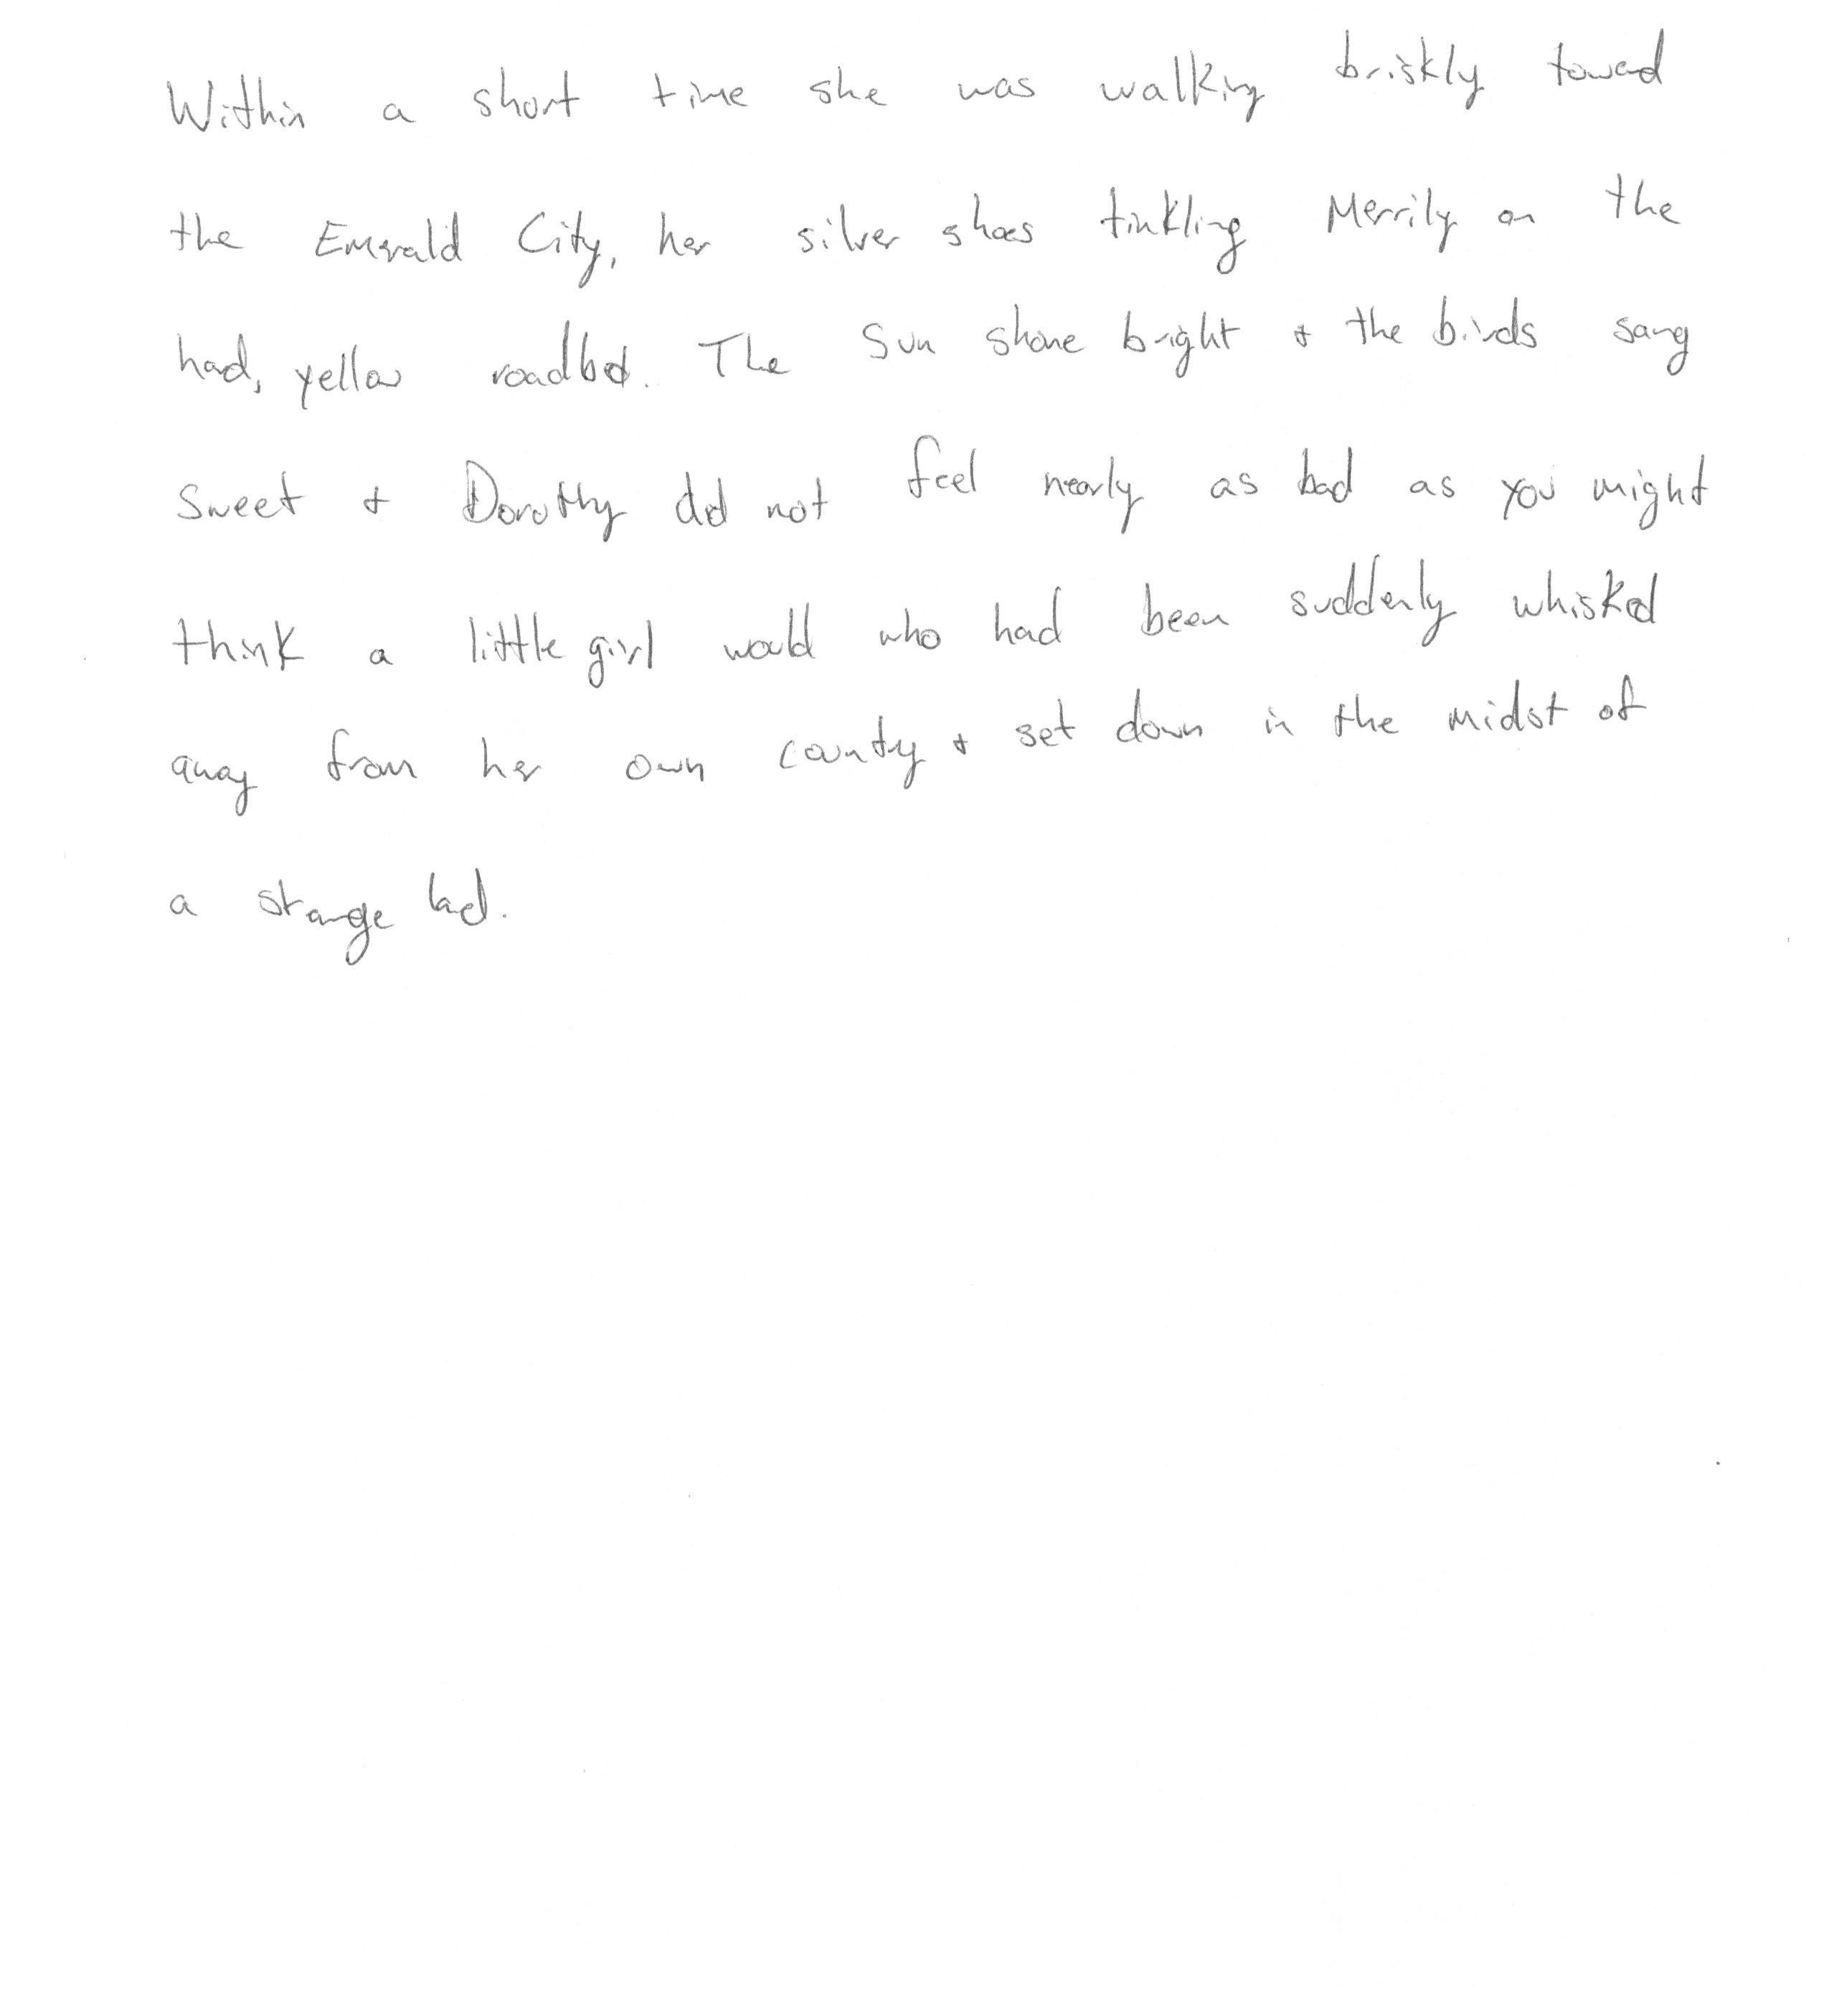 Within a short time she was walking briskly toward
the Emerald City, her silver shoes tinkling Merrily on the
hard, yellow roadbed. The Sun shone bright & the birds sang
Sweet & Dorothy did not feel nearly as bad as you might
think a little girl would who had been suddenly whisked
away from her own country & set down in the midst of
a strange land.